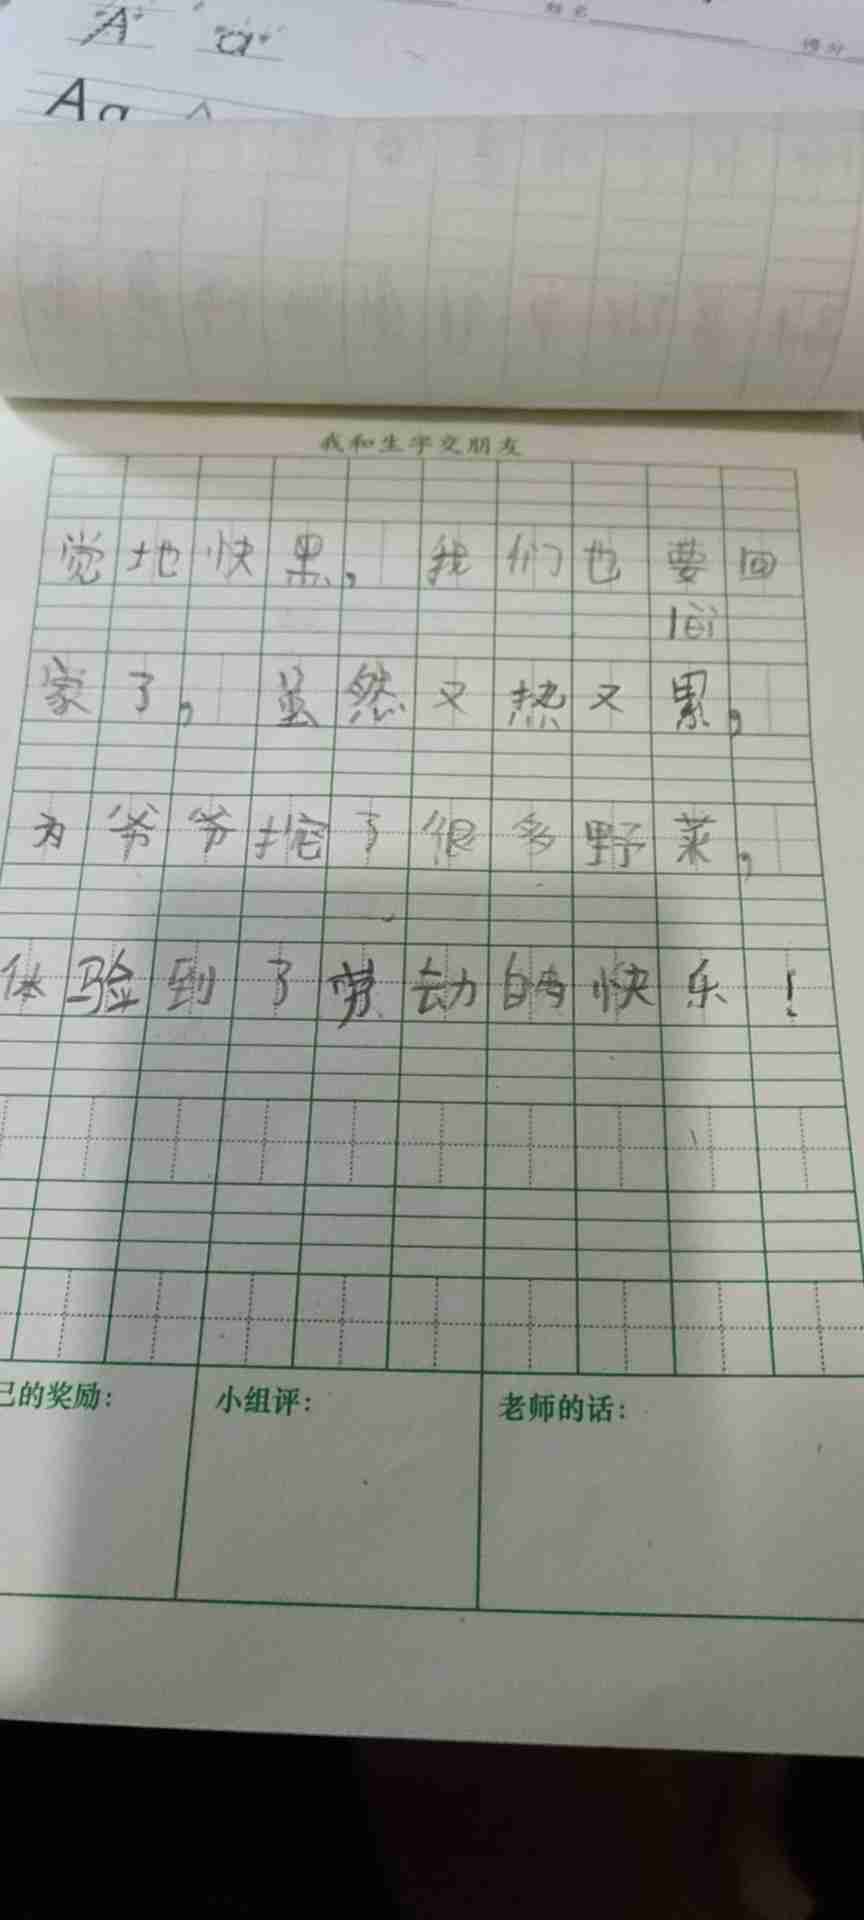 A a
姓名
得分
Aa
我和生字交朋友
觉地快黑，我们也要回
家了，虽然又热又累，
为爷爷挖了很多野菜，
体验到了劳动的快乐！
己的奖励：
小组评：
老师的话：